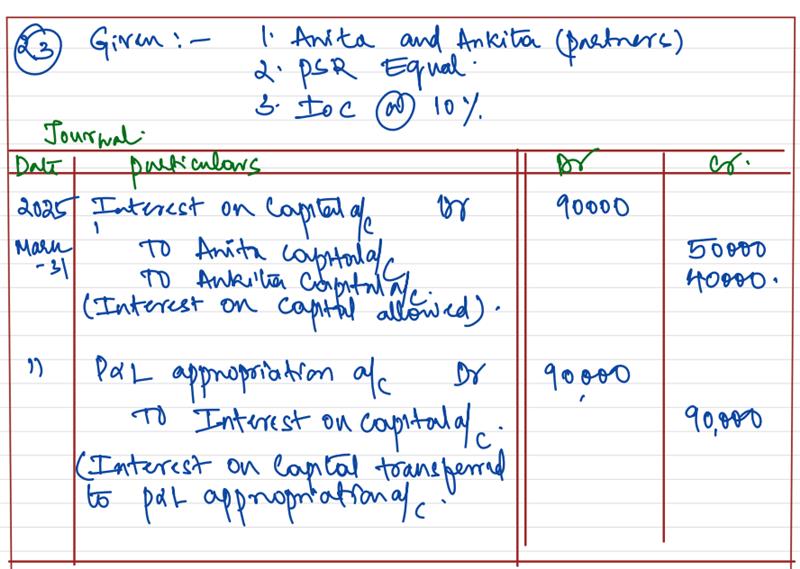 23 Given :- 1. Anita and Ankita (partners)
2. PSR Equal.
3. IOC @ 10%.
Journal.
Date particulars Dr Cr.
2025 Interest on capital a/c Dr 90000
March -31 To Anita capital a/c 50000
To Ankita Capital a/c. 40000.
(Interest on capital allowed).
" P&L appropriation a/c Dr 90,000
To Interest on capital a/c. 90,000
(Interest on Capital transferred
to P&L appropriation a/c.